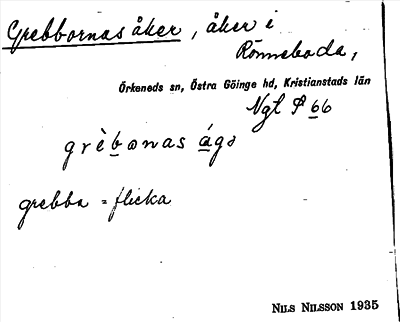 Grebbornas åker, åker i
Rönneboda,
Örkeneds sn, Östra Göinge hd, Kristianstads län
Ngl P 66
grèbɷnas ágə
grebba = flicka
NILS NILSSON 1935